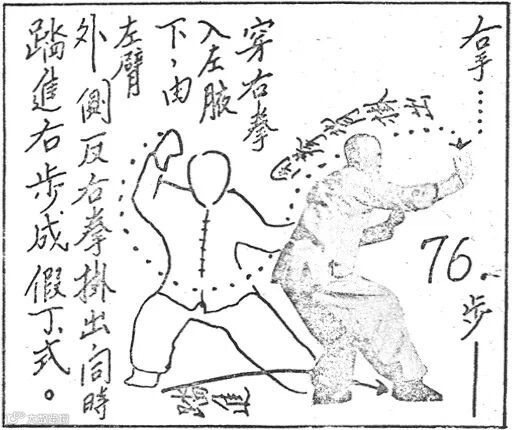 右手……
76.
步——
掛出
穿右拳
入左腋
下，由
左臂
外側反右拳掛出同時
踏進右步成假丁式。
踏進